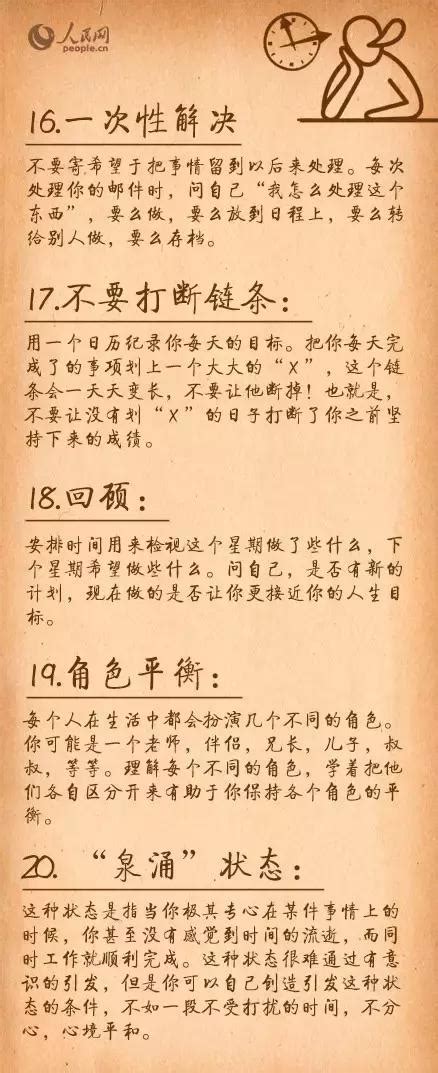 人民网
people.cn
16.一次性解决
不要寄希望于把事情留到以后来处理。每次
处理你的邮件时，问自己“我怎么处理这个
东西”，要么做，要么放到日程上，要么转
给别人做，要么存档。
17.不要打断链条：
用一个日历纪录你每天的目标。把你每天完
成了的事项划上一个大大的“X”，这个链
条会一天天变长，不要让他断掉！也就是，
不要让没有划“X”的日子打断了你之前坚
持下来的成绩。
18.回顾：
安排时间用来检视这个星期做了些什么，下
个星期希望做些什么。问自己，是否有新的
计划，现在做的是否让你更接近你的人生目
标。
19.角色平衡：
每个人在生活中都会扮演几个不同的角色。
你可能是一个老师，伴侣，兄长，儿子，叔
叔，等等。理解每个不同的角色，学着把他
们各自区分开来有助于你保持各个角色的平
衡。
20.“泉涌”状态：
这种状态是指当你极其专心在某件事情上的
时候，你甚至没有感觉到时间的流逝，而同
时工作就顺利完成。这种状态很难通过有意
识的引发，但是你可以自己创造引发这种状
态的条件，不如一段不受打扰的时间，不分
心，心境平和。